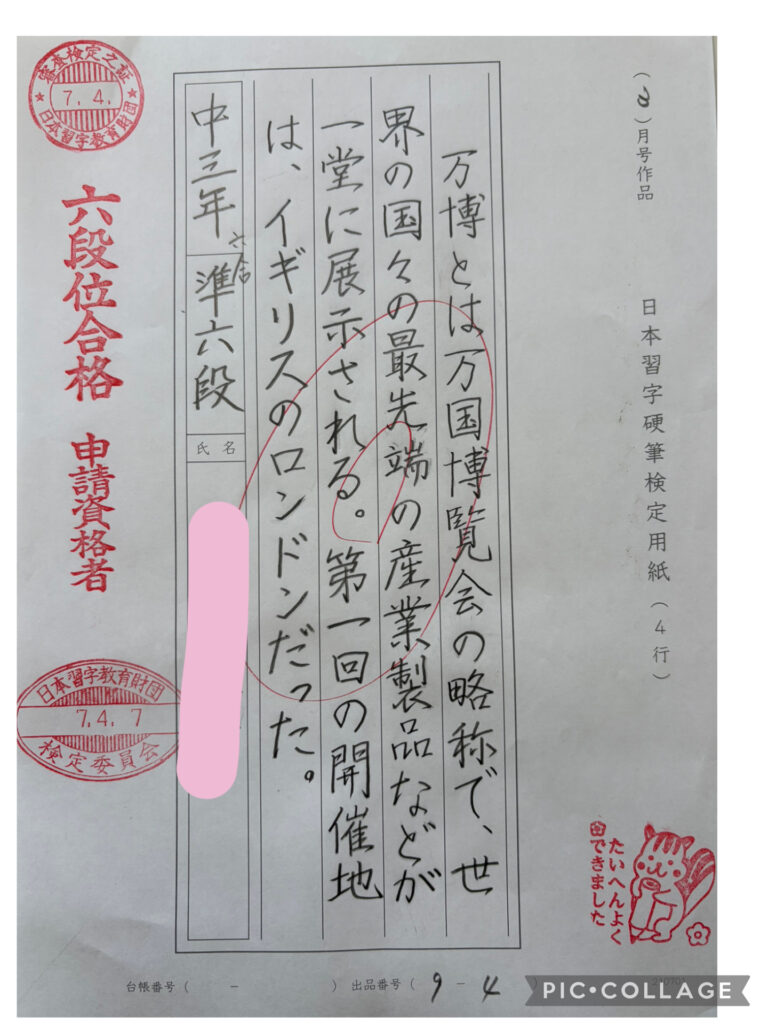 (3)月号作品
日本習字硬筆検定用紙(4行)
万博とは万国博覧会の略称で、世
界の国々の最先端の産業製品などが
一堂に展示される。第一回の開催地
は、イギリスのロンドンだった。
中三年 準六段
六合
氏名
審査検定之証
7.4.
日本習字教育財団
六段位合格 申請資格者
日本習字教育財団
7.4.7
検定委員会
たいへんよく
できました
台帳番号( - ) 出品番号( 9 - 4 )
PIC•COLLAGE